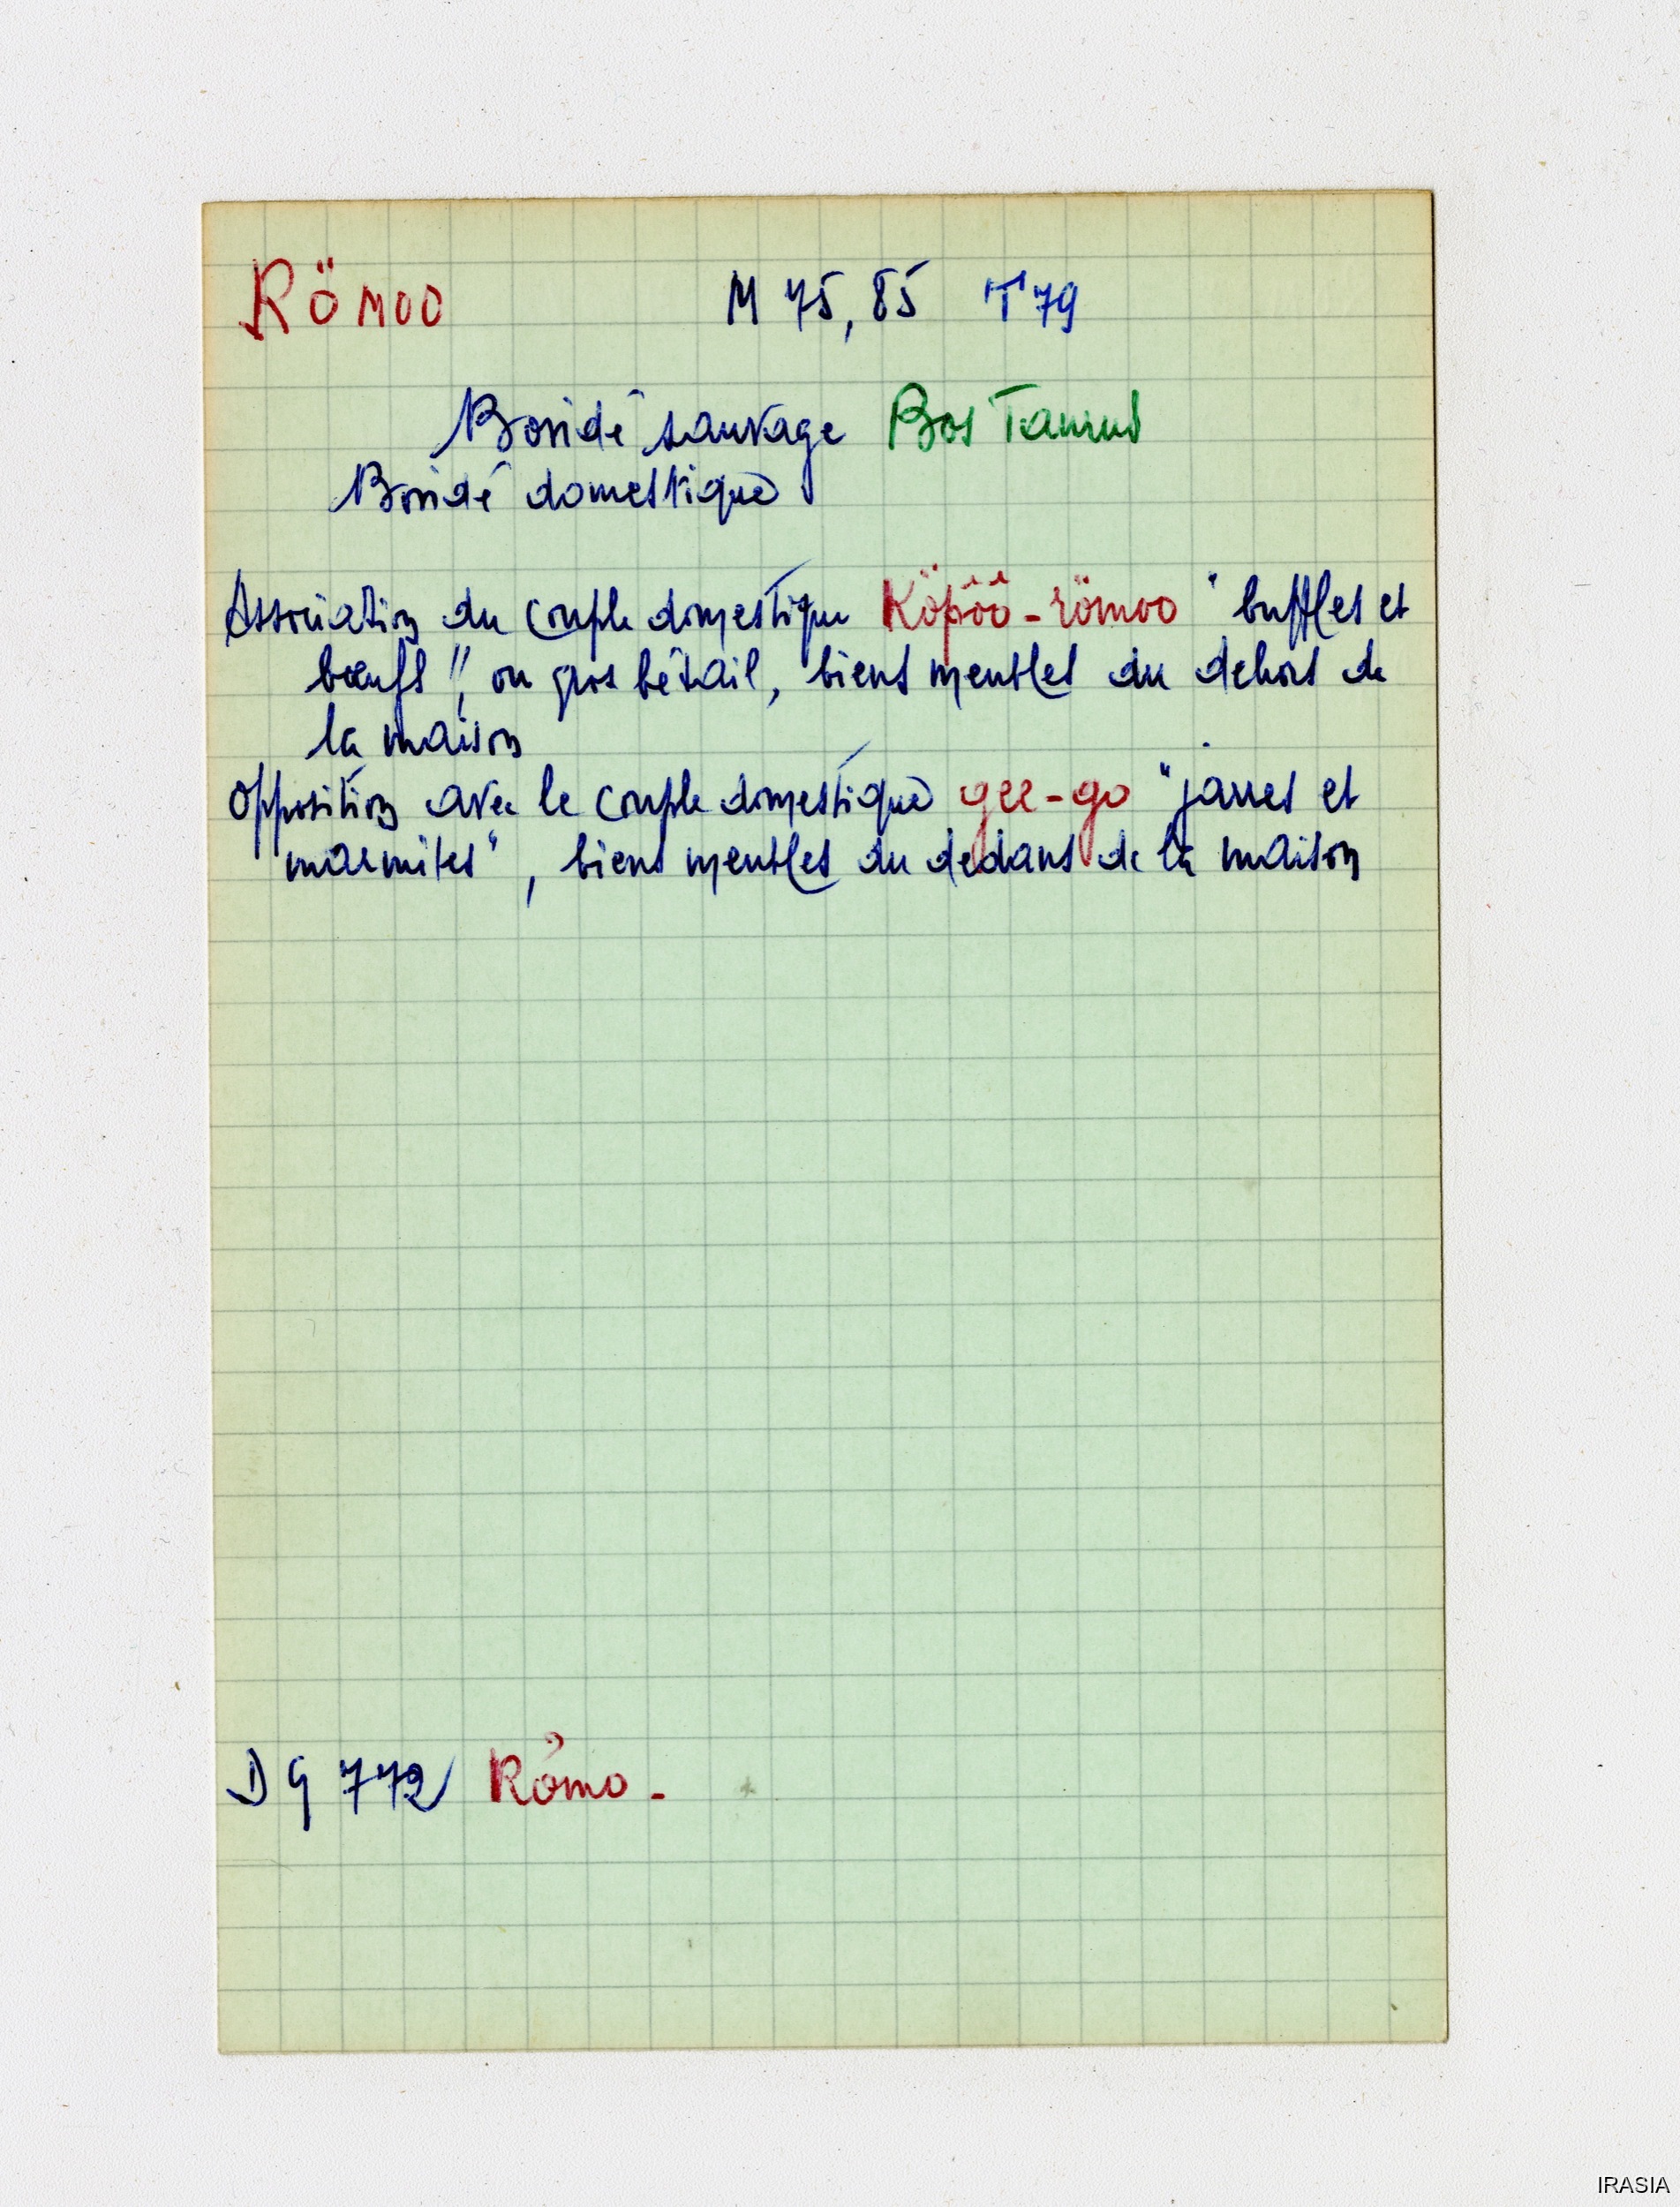 Römoo M 75, 85 T 79
Bovidé sauvage Bos Taurus
Bovidé domestique
Association du couple domestique Köpôô-römoo "buffles et
bœufs", ou gros bétail, biens meubles du dehors de
la maison
Opposition avec le couple domestique gee-go "jarres et
marmites", biens meubles du dedans de la maison
DG 772
IRASIA